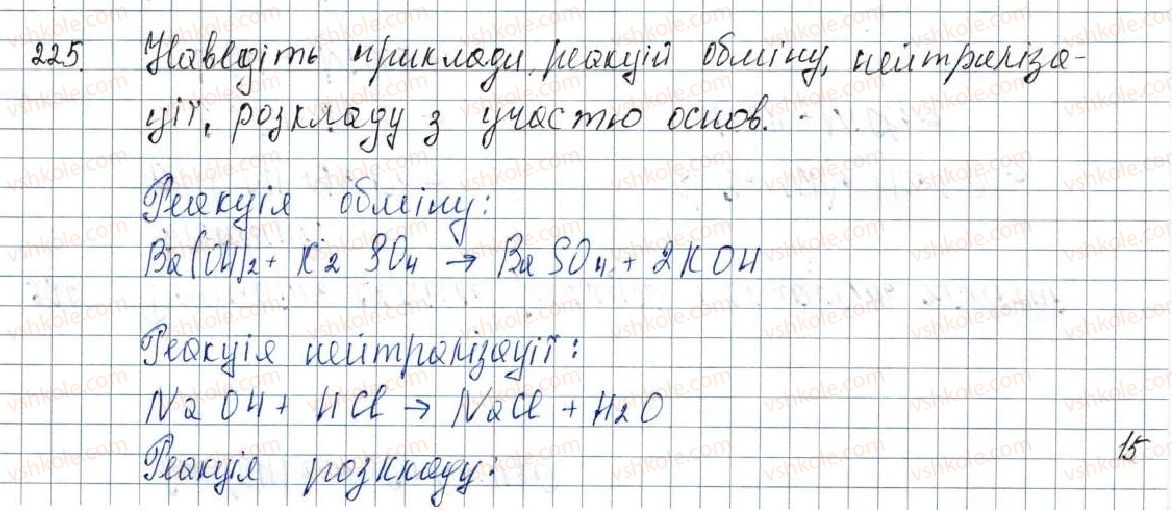 225. Наведіть приклади реакцій обміну, нейтраліза-
ції, розкладу з участю основ.
Реакція обміну:
Ba(OH)2 + K2SO4 → BaSO4 + 2KOH
Реакція нейтралізації:
NaOH + HCl → NaCl + H2O
Реакція розкладу:
15
vshkole.com